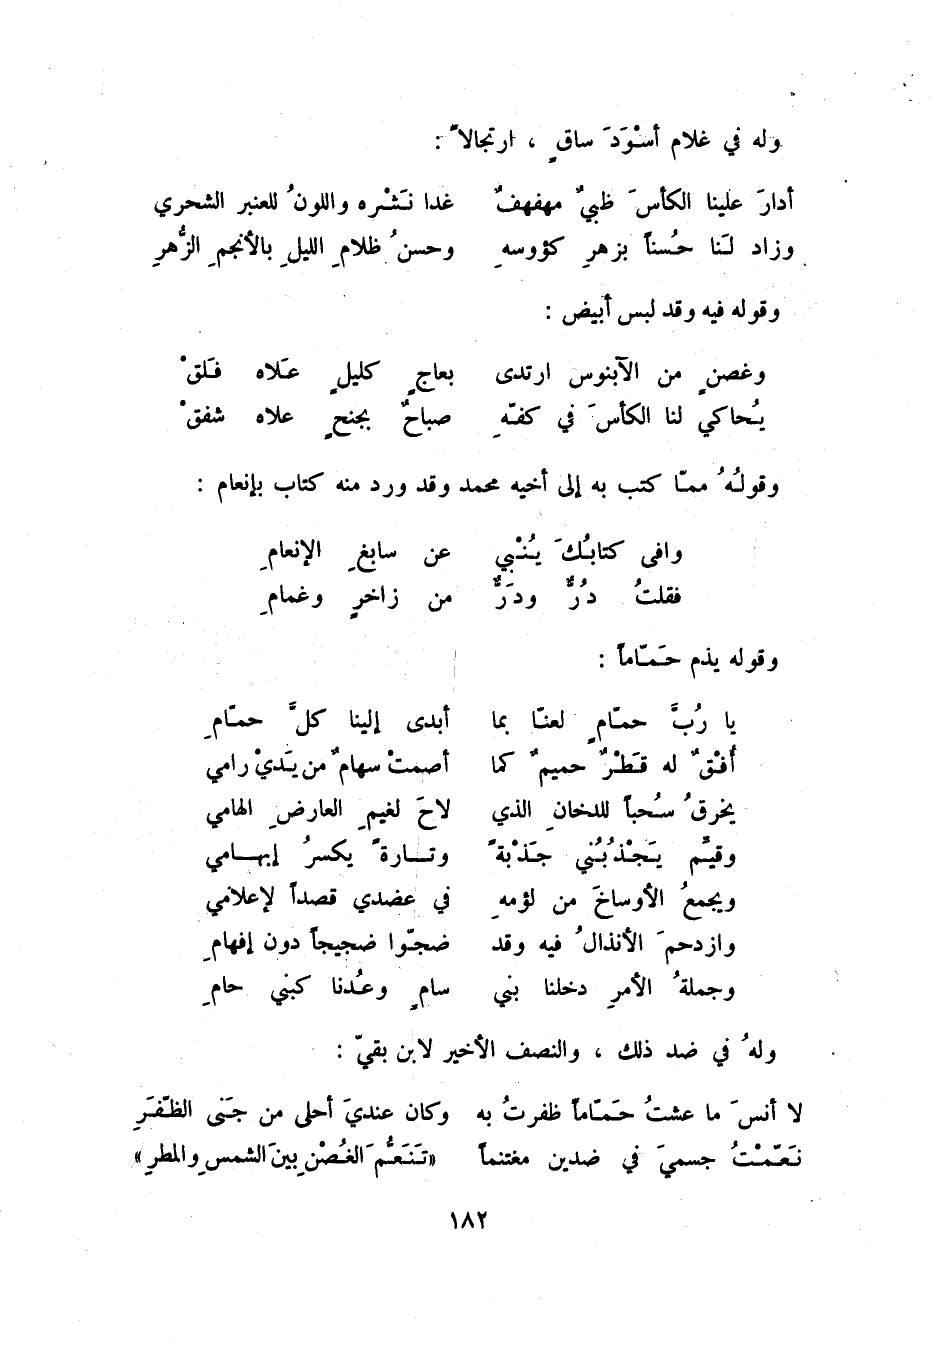 وله في غلام أسْوَدَ ساقٍ ، ارتجالاً :
أدارَ علينا الكأسَ ظبيٌ مهفهفٌ غدا نَشْره واللونُ للعنبر الشحري
وزاد لَنا حُسناً بزهرِ كؤوسهِ وحسنُ ظلامِ الليلِ بالأنجمِ الزُّهرِ
وقوله فيه وقد لبس أبيض :
وغصنٍ من الآبنوس ارتدى بعاجٍ كليلٍ عَلاه فَلَقْ
يُحاكي لنا الكأسَ في كفّهِ صباحٌ بجنحٍ علاه شفقْ
وقولُهُ ممّا كتب به إلى أخيه محمد وقد ورد منه كتاب بإنعام :
وافى كتابُكَ يُنْبي عن سابغِ الإنعامِ
فقلتُ دُرٌّ ودَرٌّ من زاخرٍ وغمامِ
وقوله يذم حَمّاماً :
يا رُبَّ حمّامٍ لعنّا بما أبدى إلينا كلَّ حمّامِ
أُفْقٌ له قَطْرٌ حميمٌ كما أصمتْ سهامٌ من يَدَيْ رامي
يخرقُ سُحباً للدخانِ الذي لاحَ لغيمِ العارضِ الهامي
وقيّم يَجْذبُني جَذْبةً وتارةً يكسرُ إبهامي
ويجمعُ الأوساخَ من لؤمهِ في عضدي قصداً لإعلامي
وازدحمَ الأنذالُ فيه وقد ضجّوا ضجيجاً دون إفهامِ
وجملةُ الأمرِ دخلنا بني سامٍ وعُدنا كبني حامِ
ولهُ في ضد ذلك ، والنصف الأخير لابن بقيّ :
لا أنسَ ما عشتُ حَمّاماً ظفرتُ به وكان عنديَ أحلى من جَنى الظّفَرِ
نَعّمْتُ جسميَ في ضدين مغتنماً «تَنَعُّمَ الغُصْنِ بينَ الشمسِ والمطرِ»
١٨٢